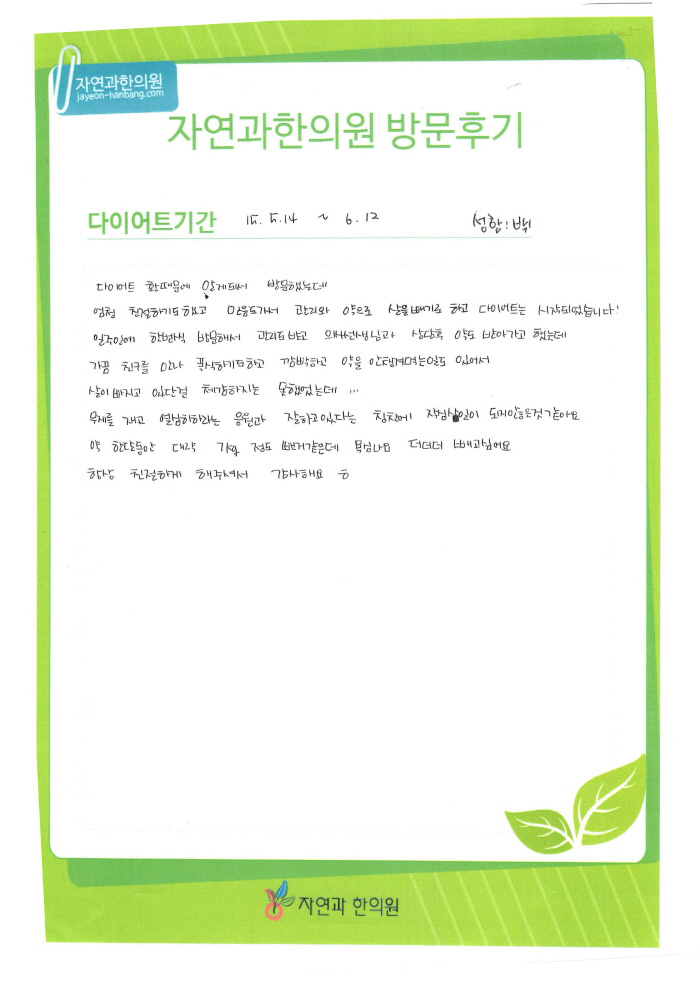 자연과한의원
jayeon-hanbang.com
자연과한의원 방문후기
다이어트기간 15. 5. 14 ~ 6. 12 성함 : 백
다이어트 한때문에 알게되서 방문했는데
엄청 친절하기도 했고 믿음도가서 관리와 약으로 살을빼기로 하고 다이어트는 시작되었습니다!
일주일에 한번씩 방문해서 관리도받고 의사선생님과 상담후 약도 받아가고 했는데
가끔 친구를 만나 폭식하기도하고 깜박하고 약을 안챙겨먹는일도 있어서
살이빠지고 있단걸 체감하지는 못했었는데 ...
무게를 재고 열심히하라는 응원과 잘하고있다는 칭찬에 작심삼일이 되지않은것같아요
약 한달동안 대략 정도 빠진거같은데 욕심나요 더더더 빼고싶어요
항상 친절하게 해주셔서 감사해요
자연과 한의원